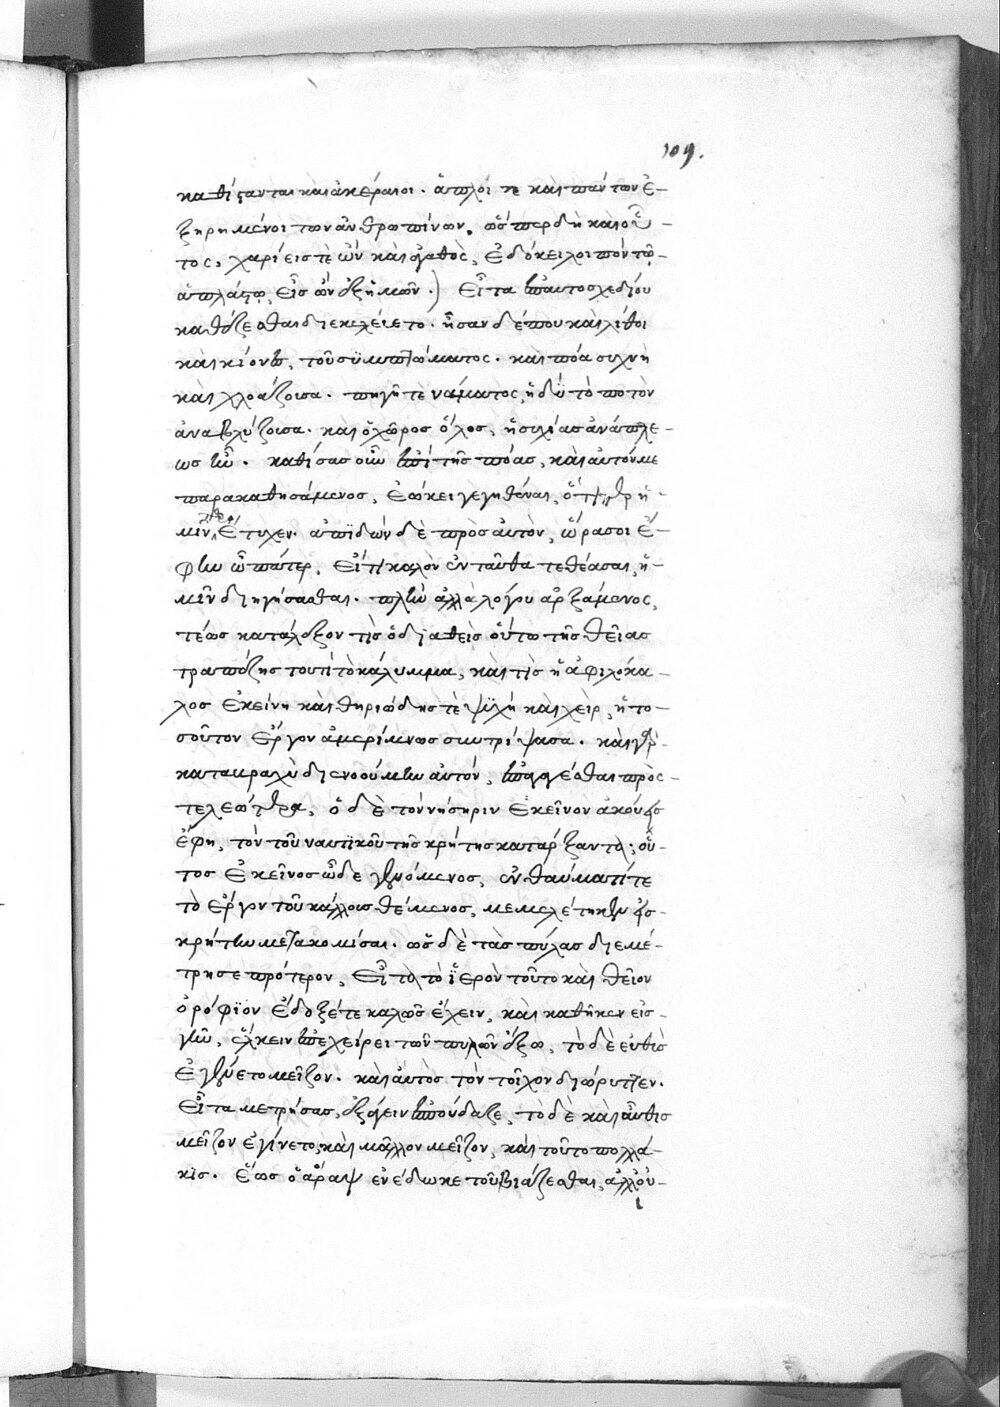 109.
καθίσανται καὶ ἀκέραιοι. ἁπλοί τε καὶ πάντων ἐ-
ξῃρημένοι τῶν ἀνθρωπίνων. ὥσπερ δὴ καὶ οὗ-
τος, χαρίεις τὲ ὢν καὶ ἀγαθὸς, ἐδόκει λοιπὸν τῷ
ἁπλάστῳ, εἷς ὢν ἐξ ἡμῶν.) εἶτα ἐπ' αὐτοσχεδίου
καθέζεσθαι διεκελεύετο. ἦσαν δέ που καὶ λίθοι
καὶ κίονες, τοῦ συμπτώματος. καὶ πόα συχνὴ
καὶ χλοάζουσα. πηγὴ τὲ νάματος, ἡδὺ τὸ ποτὸν
ἀναβλύζουσα. καὶ ὁ χῶρος ὅλος, ἡσυχίας ἀνάπλε-
ως ἦν. καθίσας οὖν ἐπὶ τῆς πόας, καὶ αὐτόν με
παρακαθησάμενος, ἐῴκει γεγηθέναι, ὅτι παρ' ἡ-
μῖν ἔτυχεν. ἀπιδὼν δὲ πρὸς αὐτὸν, ὥρα σοι ἔ-
φην ὦ πάτερ, εἴ τι καλὸν ἐνταῦθα τεθέασαι, ἡ-
μῖν διηγήσασθαι. πολλὴν ἀλλὰ λόγου ἀρξάμενος,
τέως κατάλεξον τίς ὁ διαθεὶς οὕτω τῆς θείας
τραπέζης τουτὶ τὸ κάλυμμα, καὶ τίς ἡ ἀφιλόκα-
λος ἐκείνη καὶ θηριώδης τὲ ψυχὴ καὶ χεὶρ, ἡ το-
σοῦτον ἔργον ἀμερίμνως συντρίψασα. καὶ γὰρ
καταμραχὺ διενοούμην αὐτόν, ἐπάγεσθαι πρὸς
τελεώτερα, ὁ δὲ τὸν νήσηριν ἐκεῖνον ἀκούεις
ἔφη, τὸν τοῦ ναυτικοῦ τῆς κρήτης κατάρξαντα; οὗ-
τος ἐκεῖνος ὧδε γενόμενος, ἐν θαύματί τε
τὸ ἔργον τοῦ κάλλους θέμενος, μεμελέτηκεν εἰς
κρήτην μετακομίσαι. ὡς δὲ τὰς πύλας διεμέ-
τρησε πρότερον, εἶτα τὸ ἱερὸν τοῦτο καὶ θεῖον
ὀρόφιον ἔδοξέ τε καλῶς ἔχειν, καὶ καθῆκεν εἰς
γῆν, ἕλκειν ἐπεχείρει τῶν πυλῶν ἔξω, τὸ δὲ εὐθὺς
ἐγένετο μεῖζον. καὶ αὐτὸς τὸν τοῖχον διώρυττεν.
εἶτα μετρήσας, ἐξάγειν ἐσπούδαζε, τὸ δὲ καὶ αὖθις
μεῖζον ἐγίνετο, καὶ μᾶλλον μεῖζον, καὶ τοῦτο πολλά-
κις. ἕως ὁ ἄραψ ἐνέδωκε τοῦ βιάζεσθαι, ἀλλ' οὐ-